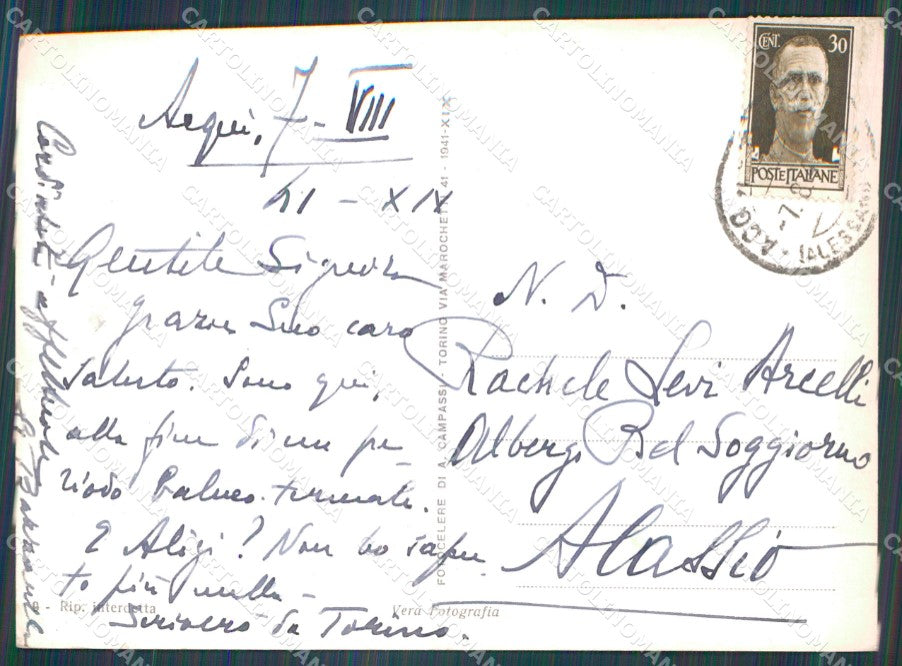 Acqui, 7 - VIII
41 - XIX
Gentile Signora
grazie Suo caro
saluto. Sono qui,
alla fine di un pe-
riodo balneo-termale.
E Aligi? Non ho sapu
to più nulla -
Scriverò da Torino.
Cordialità - affettuose
N. D.
Rachele Levi Arcelli
Albergo Bel Soggiorno
Alassio
CENT. 30
POSTE ITALIANE
(ALESSAND
FOTOCELERE DI A. CAMPASSI - TORINO VIA MAROCHETTI 41 - 1941-XIX
- Rip. interdetta
Vera Fotografia
CARTOLINOMANIA